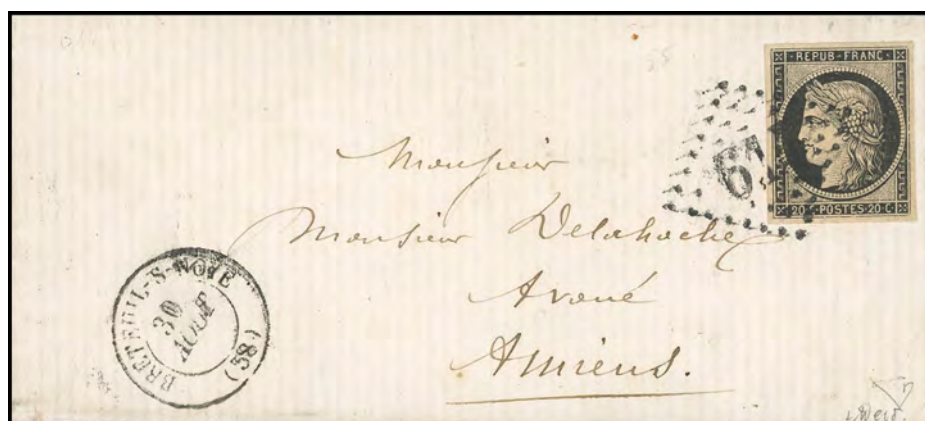 REPUB·FRANC·
20 C·POSTES·20 C·
Monsieur
Monsieur Delahoche
Avoué
Amiens.
BRETEUIL-S-NOYE
30
AOUT
(58)